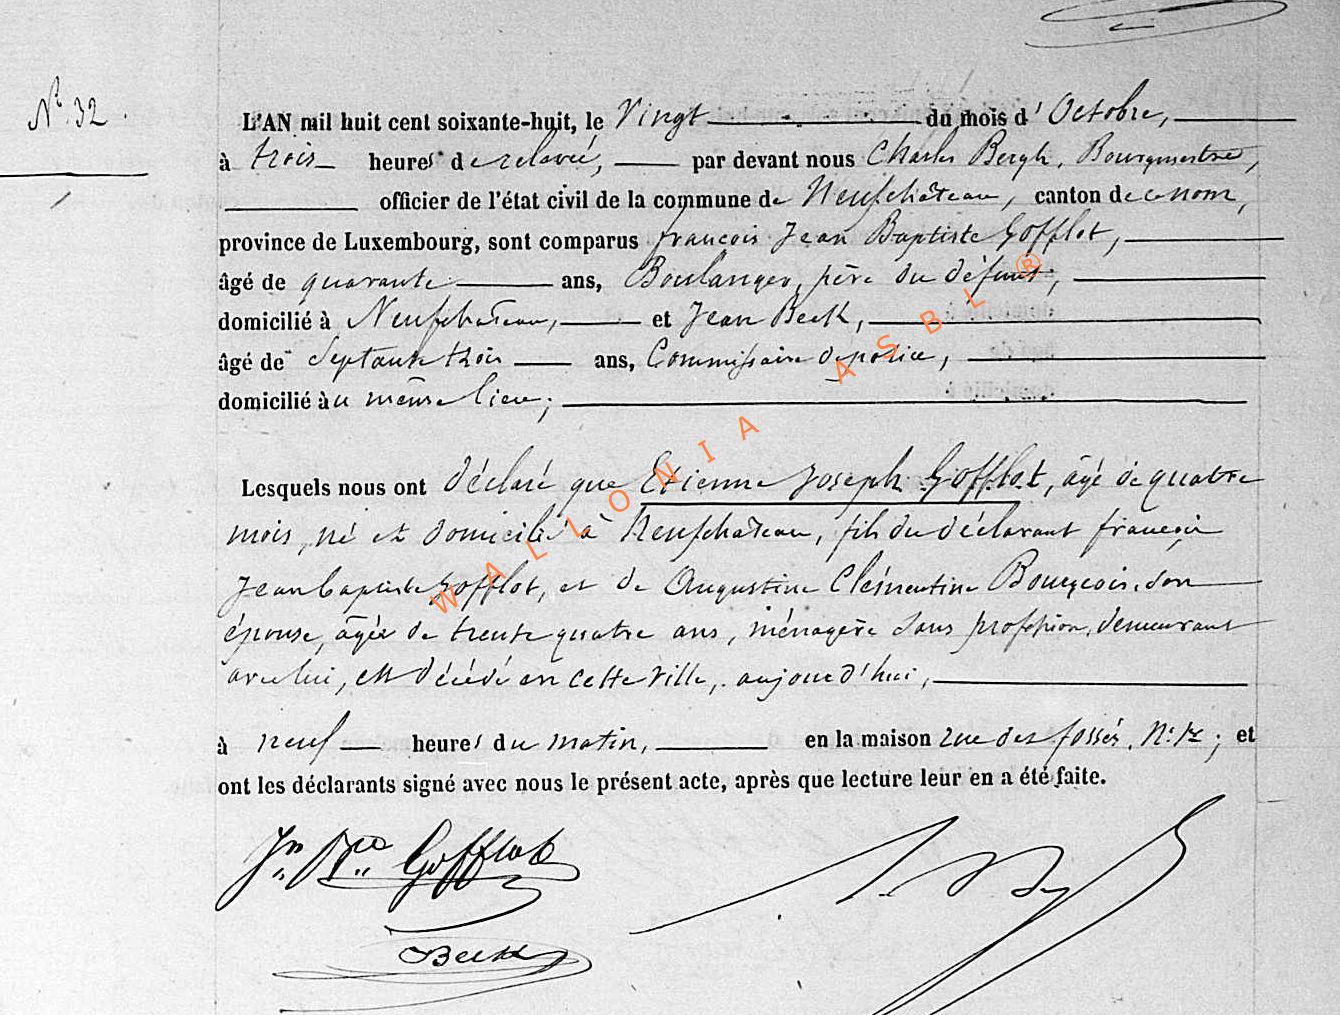 N° 32.
L'AN mil huit cent soixante-huit, le Vingt du mois d' Octobre,
à trois heures de relevée, par devant nous Charles Bergh, Bourgmestre,
officier de l'état civil de la commune de Neufchâteau, canton de ce nom,
province de Luxembourg, sont comparus françois Jean Baptiste Gofflot,
âgé de quarante ans, Boulanger, père du défunt,
domicilié à Neufchâteau, et Jean Beck,
âgé de Septante trois ans, Commissaire de police,
domicilié au même lieu;
Lesquels nous ont déclaré que Etienne Joseph Gofflot, âgé de quatre
mois, né et domicilié à Neufchâteau, fils du déclarant françois
Jean baptiste Gofflot, et de Augustine Clémentine Bourgeois, son
épouse, âgée de trente quatre ans, ménagère sans profession, demeurant
avec lui, est décédé en cette ville, aujourd'hui,
à neuf heures du matin, en la maison rue des fossés, N°; et
ont les déclarants signé avec nous le présent acte, après que lecture leur en a été faite.
Jn Bte Gofflot
Beck
WALLONIA ASBL ®